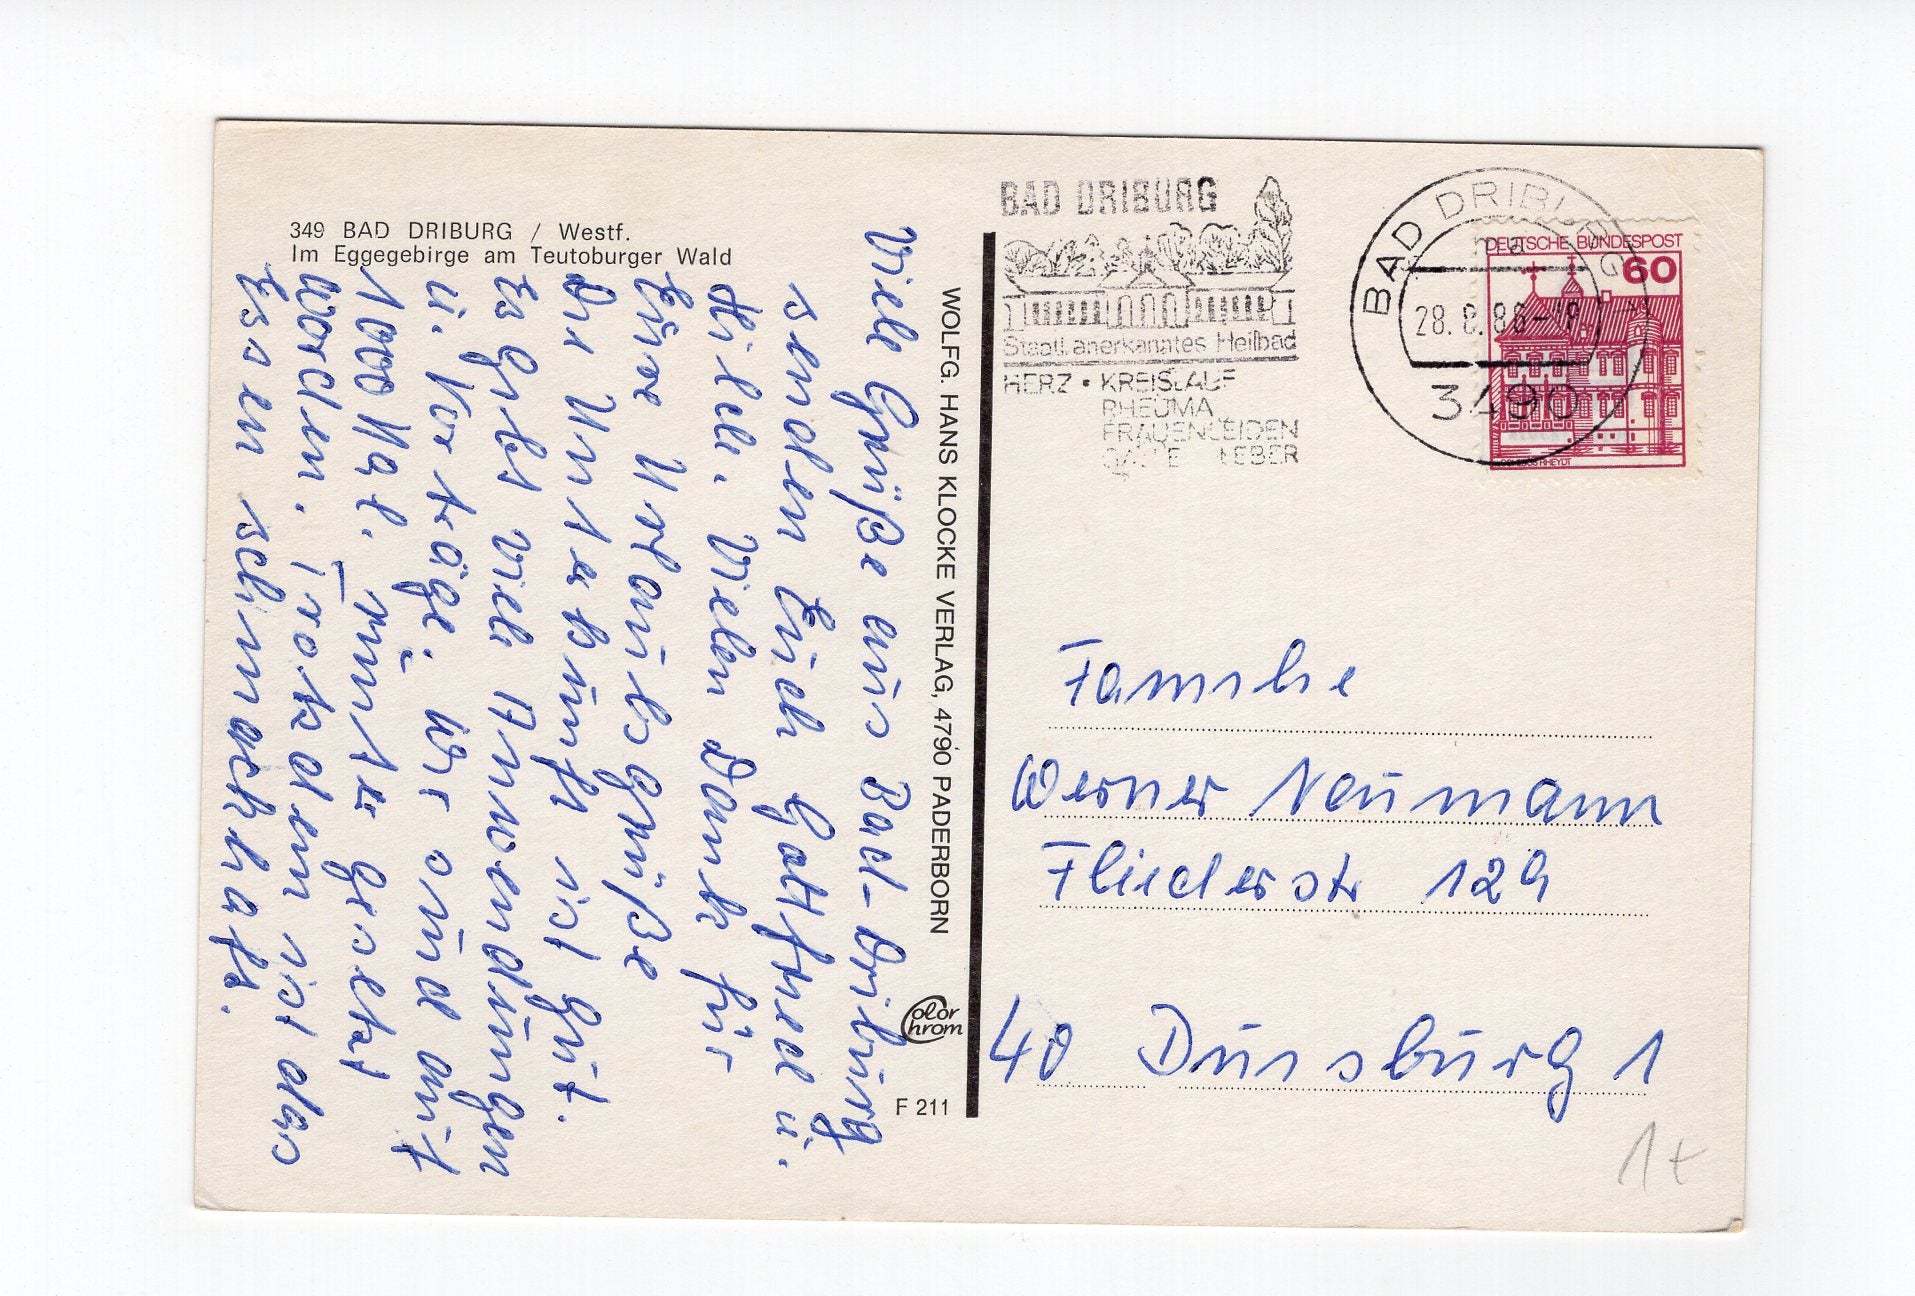 349 BAD DRIBURG / Westf.
Im Eggegebirge am Teutoburger Wald
Viele Grüße aus Bad-Driburg
senden Euch Gottfried u.
Hilde. Vielen Dank für
Eure Urlaubsgrüße
Die Unterkunft ist gut.
Es gibt viele Anwendungen
u. Vorträge, wir sind auf
1000 Kal. runter gesetzt
worden. Trotzdem ist das
Essen schmackhaft.
WOLFG. HANS KLOCKE VERLAG, 4790 PADERBORN
Color
Chrom
F 211
BAD DRIBURG
Staatl. anerkanntes Heilbad
HERZ • KREISLAUF
RHEUMA
FRAUENLEIDEN
GALLE LEBER
BAD DRIBURG 1
ma
28.8.86-18
3490
DEUTSCHE BUNDESPOST
60
SCHLOSS RHEYDT
Familie
Werner Neumann
Fliederstr 129
40 Duisburg 1